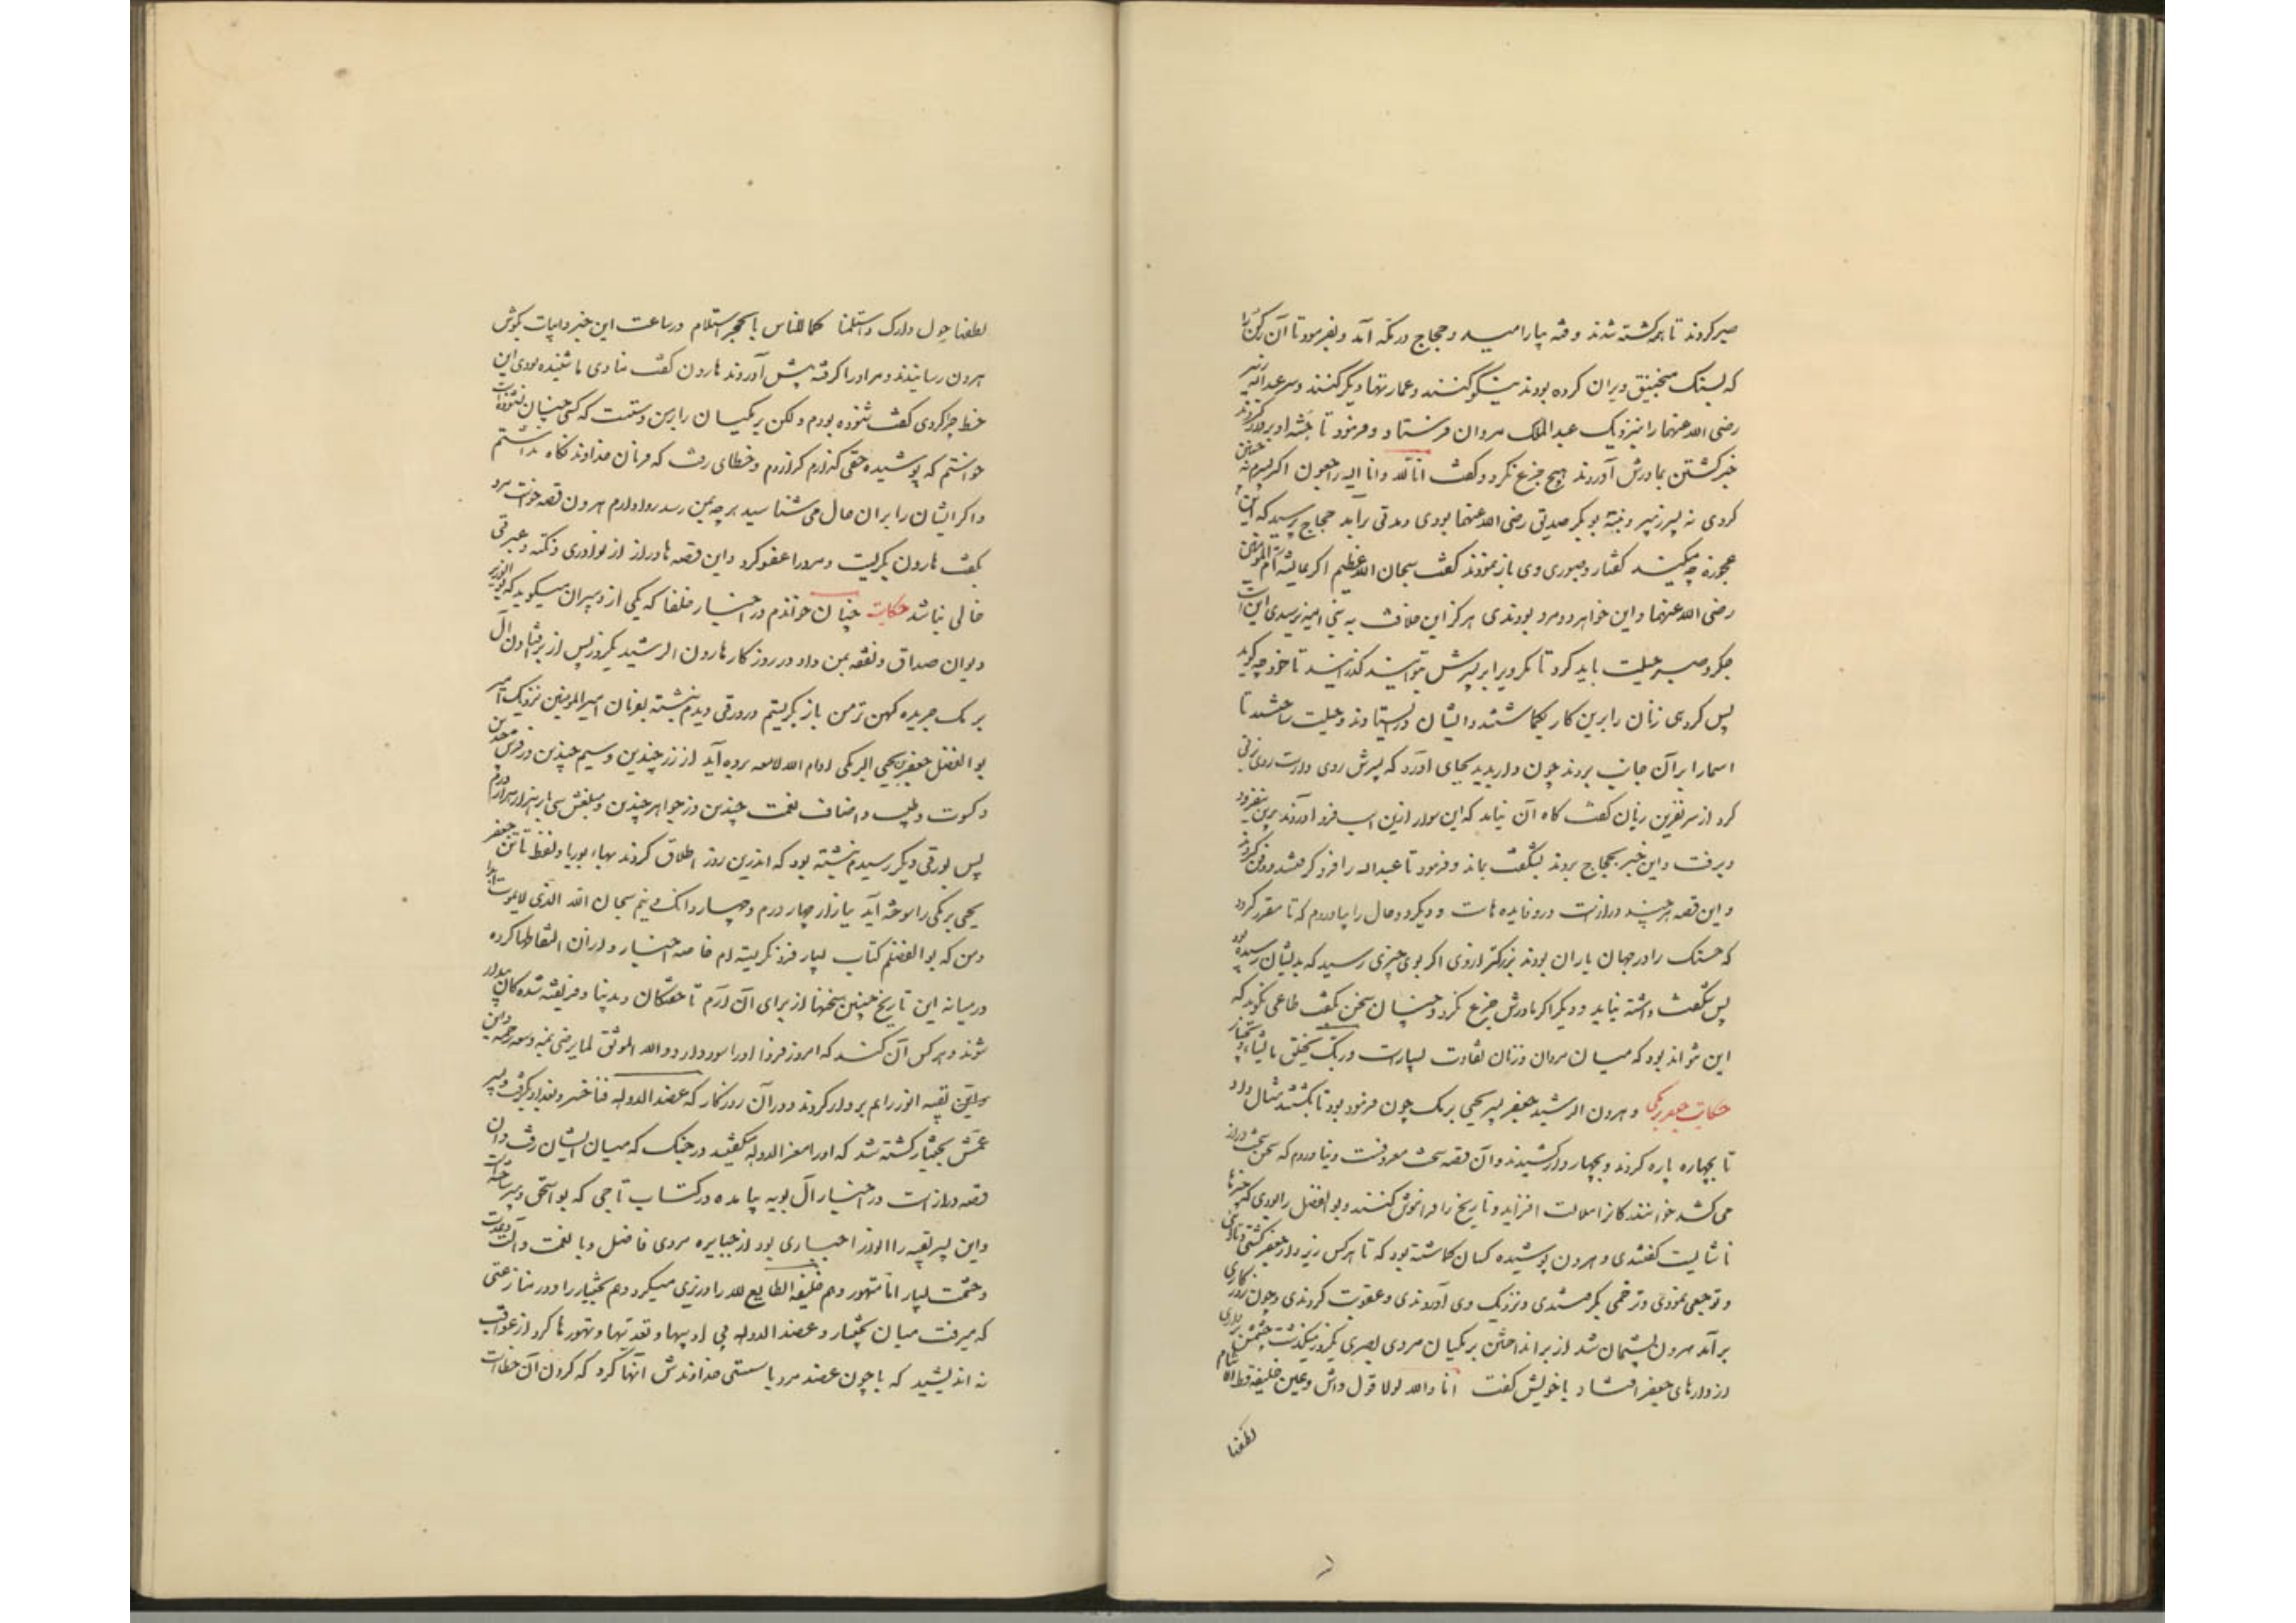 صبر کردند تا همه کشته شدند و فتنه بیارامید و حجاج در مکه آمد و بفرمود تا آن رکن را
که بسنک منجنیق ویران کرده بودند نیکو کنند و عمارتها دیگر کنند و سر عبدالله زبیر
رضی الله عنهما را بنزدیک عبدالملک مروان فرستاد و فرمود تا جثه او بر دار کردند
خبر کشتن بمادرش آوردند هیچ جزع نکرد و کفت انا لله و انا الیه راجعون اکر پسرم نه چنین
کردی نه پسر زبیر و نبسه بوبکر صدیق رضی الله عنهما بودی و مدتی برآمد حجاج پرسید که این
عجوزه چه میکند کفتار و صبوری وی باز نمودند کفت سبحان الله العظیم اکر عایشه ام المؤمنین
رضی الله عنها و این خواهر دو مرد بودندی هرکز این خلافت به بنی امیه نرسیدی این است
جکر و صبر حیلت باید کرد تا مکر ویرا بر پسرش بتوانید کذرانید تا خود چه کوید
پس کروهی زنان را برین کار بکماشتند و ایشان درایستادند و حیلت ساختند تا
اسما را برآن جانب بردند چون دار بدید بجای آورد که پسرش روی دارست روی بزنی
کرد از سر نفرین زنان کفت کاه آن نیامد که این سوار ازین اسب فرود آورند برین نیفزود
و برفت و این خبر بحجاج بردند بشکفت بماند و فرمود تا عبدالله را فرو کرفتند و دفن کردند
و این قصه هرچند درازست درو فایده هاست و دیکر دو حال را بیاوردم که تا مقرر کردد
که حسنک را در جهان یاران بودند بزرکتر ازوی اکر بوی چیزی رسید که بدیشان رسیده بود
پس شکفت داشته نیاید و دیکر اکر مادرش جزع نکرد و چنان سخن بکفت طاعنی نکوید که
این نتواند بود که میان مردان و زنان تفاوت بسیارست و ربک یخلق ما یشاء و یختار
حکایت جعفر برمکی و هرون الرشید جعفر پسر یحیی برمک چون فرموده بود تا بکشند مثال داد
تا بچهار پاره کردند و بچهار دار کشیدند و آن قصه سخت معروفست و نیاوردم که سخن سخت دراز
می کشد خوانندکانرا ملالت افزاید و تاریخ را فراموش کنند و بوالفضل را بودی که چیزها
ناشایست کفتندی و هرون پوشیده کسان کماشته بود که تا هر کس زیر دار جعفر کشتی و تأسفی
و توجعی نمودی و ترحمی بکرفتندی و نزدیک وی آوردندی و عقوبت کردندی و چون روزکاری
برآمد هرون پشیمان شد از برانداختن برمکیان مردی بصری یکروز میکذشت چشمش بر داری
از دارهای جعفر افتاد با خویش کفت انا والله لولا قول واش و عین خلیفة قط لا تنام
لطفنا
لطفنا حول دارک و استلمنا کما للناس بالحجر استلام در ساعت این خبر و ابیات بکوش
هرون رسانیدند و مرد را کرفته پیش آوردند هارون کفت منادی ما شنیده بودی این
خطا چرا کردی کفت شنوده بودم ولکن برمکیان را برمن دستیست که کسی چنان نشنوده است
خواستم که پوشیده حقی کذارم کذاردم و خطای رفت که فرمان خداوند نکاه نداشتم
و اکر ایشان را بران حال می شناسید هرچه بمن رسد روا دارم هرون قصه خواست مرد
بکفت هارون بکریست و مرد را عفو کرد و این قصه ها دراز از نوادری و نکته و عبرتی
خالی نباشد حکایت چنان خواندم در اخبار خلفا که یکی از دبیران میکوید که بوالوزیر
دیوان صداق و نفقه بمن داد در روزکار هارون الرشید یکروز پس از برافتادن آل
برمک جریده کهن تر من باز نکریستم در ورقی دیدم نبشته بفرمان امیرالمؤمنین نزدیک امیر
بوالفضل جعفر بن یحیی البرمکی ادام الله لامعه برده آید از زر چندین و سیم چندین و فرش چندین
و کسوت و طیب و اصناف نعمت چندین و ز جواهر چندین و مبلغش سی بار هزار هزار درم
پس بورقی دیکر رسیدم نبشته بود که اندرین روز اطلاق کردند بهاء بوریا و نفط تا تن جعفر
یحیی برمکی را سوخته آید ببازار چهار درم و چهار دانک و نیم سبحان الله الذی لایموت ابدا
و من که بوالفضلم کتاب بسیار فرو نکریسته ام خاصه اخبار و ازان التقاطها کرده
در میانه این تاریخ چنین سخنها از برای آن آرم تا خفتکان و بدنیا و فریفته شدکان بیدار
شوند و هرکس آن کند که امروز و فردا او را سود دارد والله الموفق لما یرضی بمنه وسعه رحمته و ابن
بقیه الوزیر را هم بر دار کردند در آن روزکار که عضدالدوله فناخسرو بغداد بکرفت و پسر
عمش بختیار کشته شد که او را معزالدوله میکفتند در جنک که میان ایشان رفت و آن
قصه درازست در اخبار آل بویه بیامده در کتاب تاجی که بواسحق دبیر ساخته است
و این پسر بقیه الوزیر جباری بود از جبابره مردی فاضل و با نعمت و آلت و عدت
و حشمت بسیار اما متهور و هم خلیفه الطایع لله را وزیری میکرد و هم بختیار را و در منازعتی
که میرفت میان بختیار و عضدالدوله بی ادبیها و تعدیها و تهورها کرد از عواقب
نه اندیشید که با چون عضد مرد با سستی خداوندش آنها کرد که کردن آن خطاست